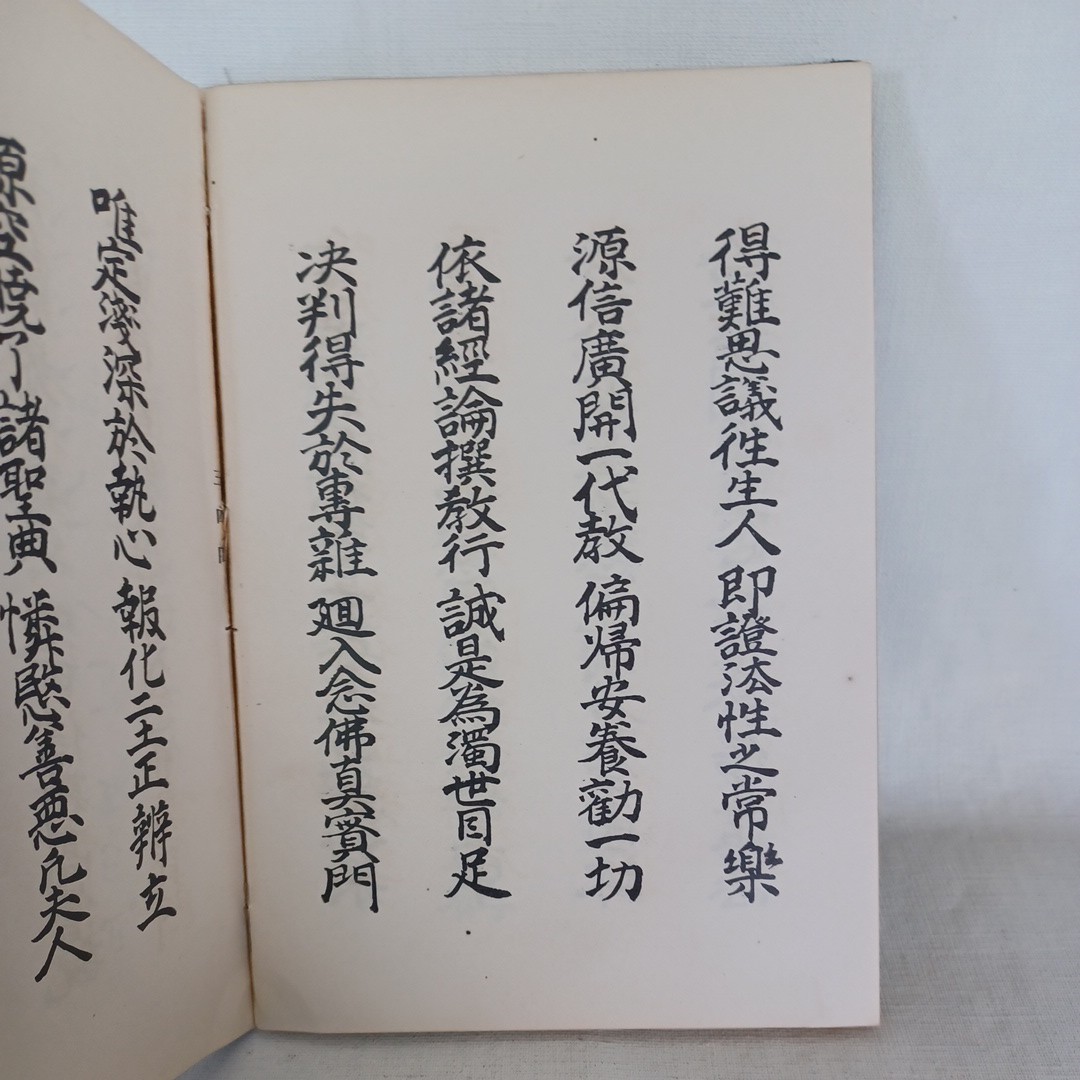 得難思議徃生人 即證法性之常樂
源信廣開一代教 偏帰安養勸一切
依諸經論撰教行 誠是為濁世目足
决判得失於專雜 廻入念佛真實門
唯定淺深於執心 報化二土正辨立
源空暁了諸聖典 憐愍善悪凡夫人